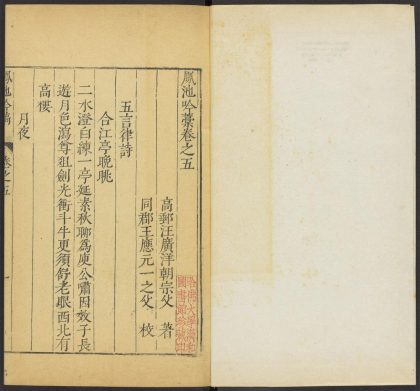 鳳池吟藁卷之五
高郵汪廣洋朝宗父 著
同郡王應元一之父 校
五言律詩
合江亭晚眺
二水澄白練一亭延素秋聊為庾公嘯因效子長
遊月色瀉尊俎劍光衝斗牛更須舒老眼西北有
高樓
月夜
鳳池吟稿 卷之五 一
哈佛大學漢和
圖書館珍藏印